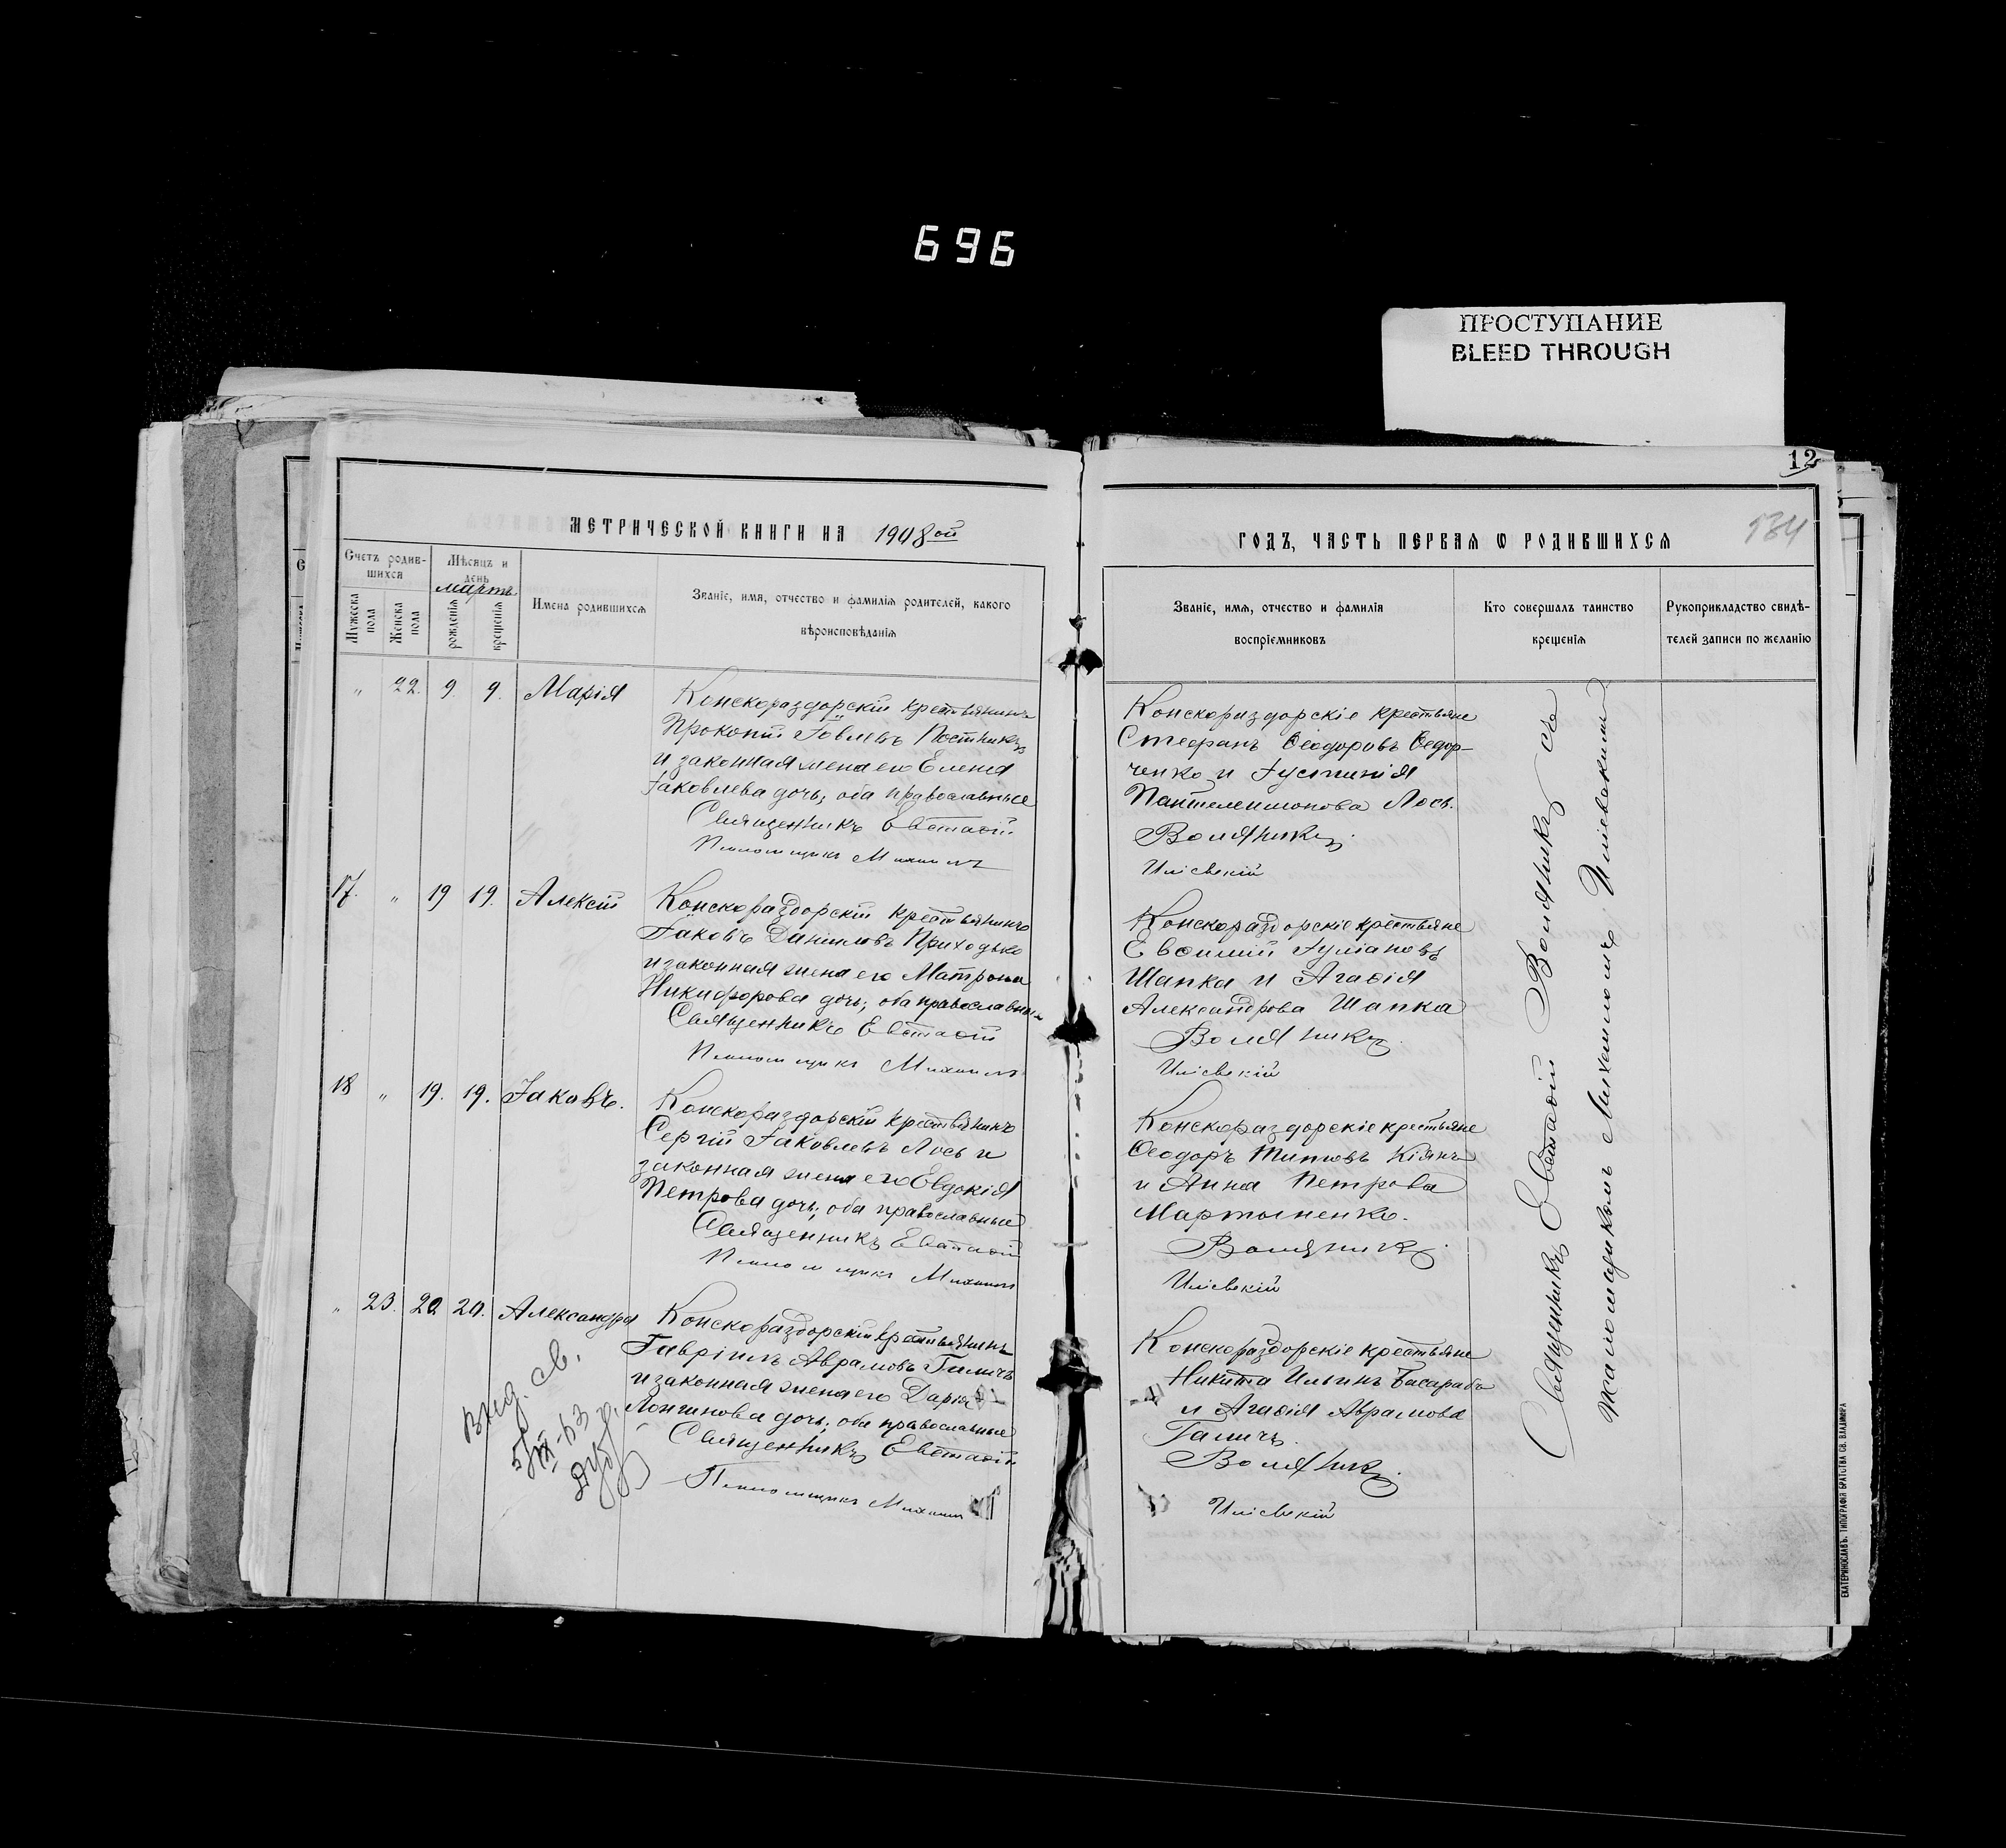 696
ПРОСТУПАНИЕ
BLEED THROUGH
12
134
МЕТРИЧЕСКОЙ КНИГИ НА 1908ой
ГОДЪ, ЧАСТЬ ПЕРВАЯ Ѡ РОДИВШИХСЯ
Счетъ родив-
шихся
Мужеска пола
Женска пола
Мѣсяцъ и
день
мартъ
рожденія
крещенія
Имена родившихся
Званіе, имя, отчество и фамилія родителей, какого
вѣроисповѣданія
Званіе, имя, отчество и фамилія
воспріемниковъ
Кто совершалъ таинство
крещенія
Рукоприкладство свидѣ-
телей записи по желанію
" 22. 9. 9. Марія
Конскораздорскій крестьянинъ
Прокопій Постникъ
и законная жена его Елена
Іаковлева дочь; оба православные
Священникъ Евстаѳій
Псаломщикъ Михаилъ
Конскораздорскіе крестьяне
Стефанъ Ѳеодоровъ Ѳедор-
ченко и Іустинія
Пантелеимонова Лось.
Воляникъ.
Иліевскій
17. " 19 19. Алексій
Конскораздорскій крестьянинъ
Іаковъ Даніиловъ Приходько
и законная жена его Матрона
Никифорова дочь; оба православные
Священникъ Евстаѳій
Псаломщикъ Михаилъ
Конскораздорскіе крестьяне
Евѳимій Іуліановъ
Шапка и Агаѳія
Александрова Шапка
Воляникъ.
Иліевскій
18 " 19. 19. Іаковъ.
Конскораздорскій крестьянинъ
Сергій Іаковлевъ Лось и
законная жена его Евдокія
Петрова дочь; оба православные
Священникъ Евстаѳій
Псаломщикъ Михаилъ
Конскораздорскіе крестьяне
Ѳеодоръ Титовъ Кіянъ
и Анна Петрова
Мартыненко.
Воляникъ.
Иліевскій
" 23. 20 20. Александра
Конскораздорскій крестьянинъ
Гавріилъ Аврамовъ Галичъ
и законная жена его Дарія
Лонгинова дочь; оба православные
Священникъ Евстаѳій
Псаломщикъ Михаил
Конскораздорскіе крестьяне
Никита Ильинъ Басарабъ
и Агаѳія Аврамова
Галичъ.
Воляникъ.
Иліевскій
выд. св.
5/III-63 г.
Священникъ Евстаѳій Воляникъ съ
псаломщикомъ Михаиломъ Иліевскимъ
ЕКАТЕРИНОСЛАВЪ. ТИПОГРАФІЯ БРАТСТВА СВ. ВЛАДИМІРА